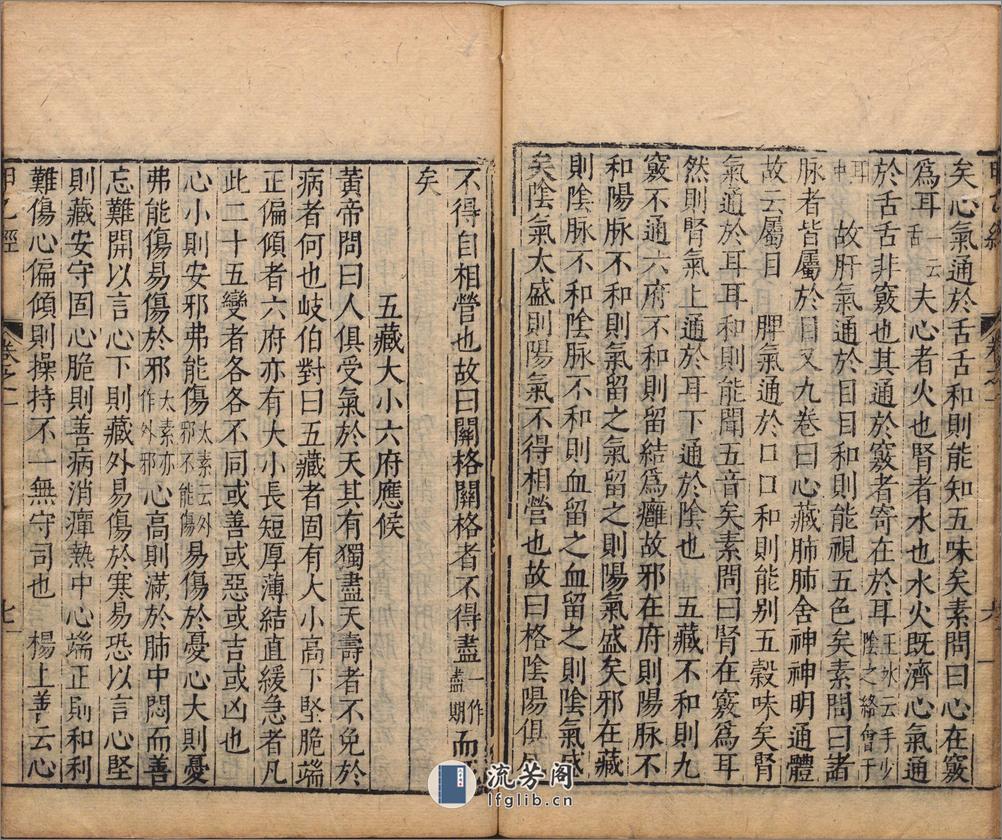 矣心氣通於舌舌和則能知五味矣素問曰心在竅
爲耳一云舌夫心者火也腎者水也水火既濟心氣通
於舌舌非竅也其通於竅者寄在於耳王氷云手少陰之絡會于
耳中故肝氣通於目目和則能視五色矣素問曰諸
脉者皆屬於目又九卷曰心藏肺肺舍神神明通體
故云屬目 脾氣通於口口和則能別五穀味矣腎
氣通於耳耳和則能聞五音矣素問曰腎在竅爲耳
然則腎氣上通於耳下通於陰也 五藏不和則九
竅不通六府不和則留結爲癰故邪在府則陽脉不
和陽脉不和則氣留之氣留之則陽氣盛矣邪在藏
則陰脉不和陰脉不和則血留之血留之則陰氣盛
矣陰氣太盛則陽氣不得相營也故曰格陰陽俱
不得自相營也故曰關格關格者不得盡一作盡期而
矣
五藏大小六府應候
黃帝問曰人俱受氣於天其有獨盡天壽者不免於
病者何也岐伯對曰五藏者固有大小高下堅脆端
正偏傾者六府亦有大小長短厚薄結直緩急者凡
此二十五變者各各不同或善或惡或吉或凶也
心小則安邪弗能傷太素云外邪不能傷易傷於憂心大則憂
弗能傷易傷於邪太素亦作外邪心高則滿於肺中悶而善
忘難開以言心下則藏外易傷於寒易恐以言心堅
則藏安守固心脆則善病消癉熱中心端正則和利
難傷心偏傾則操持不一無守司也 楊上善云心
甲乙經
卷之一
七
流芳阁
lfglib.cn